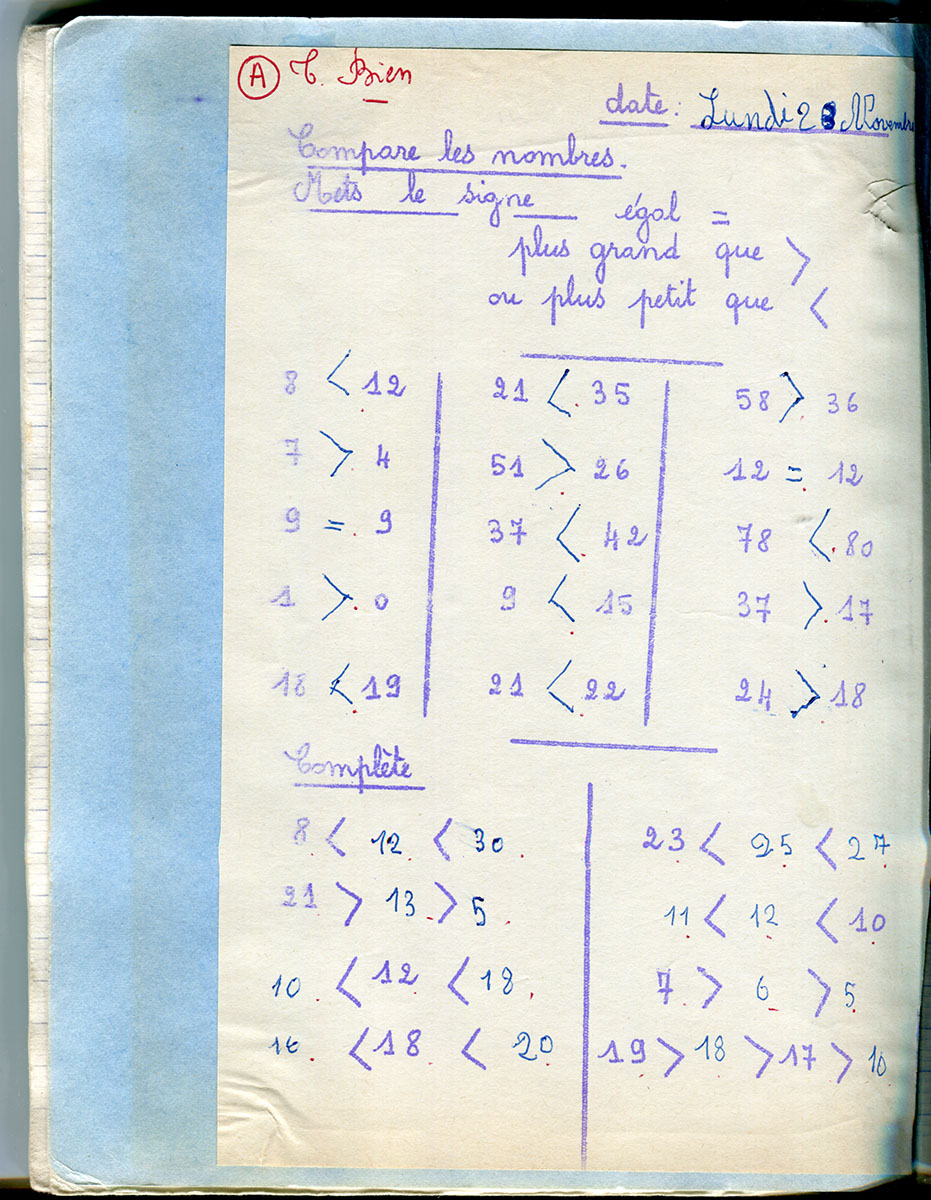 A T. Bien
date: Lundi 28 Novembre
Compare les nombres.
Mets le signe égal =
plus grand que >
ou plus petit que <
8 < 12 21 < 35 58 > 36
7 > 4 51 > 26 12 = 12
9 = 9 37 < 42 78 < 80
1 > 0 9 < 15 37 > 17
18 < 19 21 < 22 24 > 18
Complète
8 < 12 < 30 23 < 25 < 27
21 > 13 > 5 11 < 12 < 10
10 < 12 < 18 7 > 6 > 5
16 < 18 < 20 19 > 18 > 17 > 10